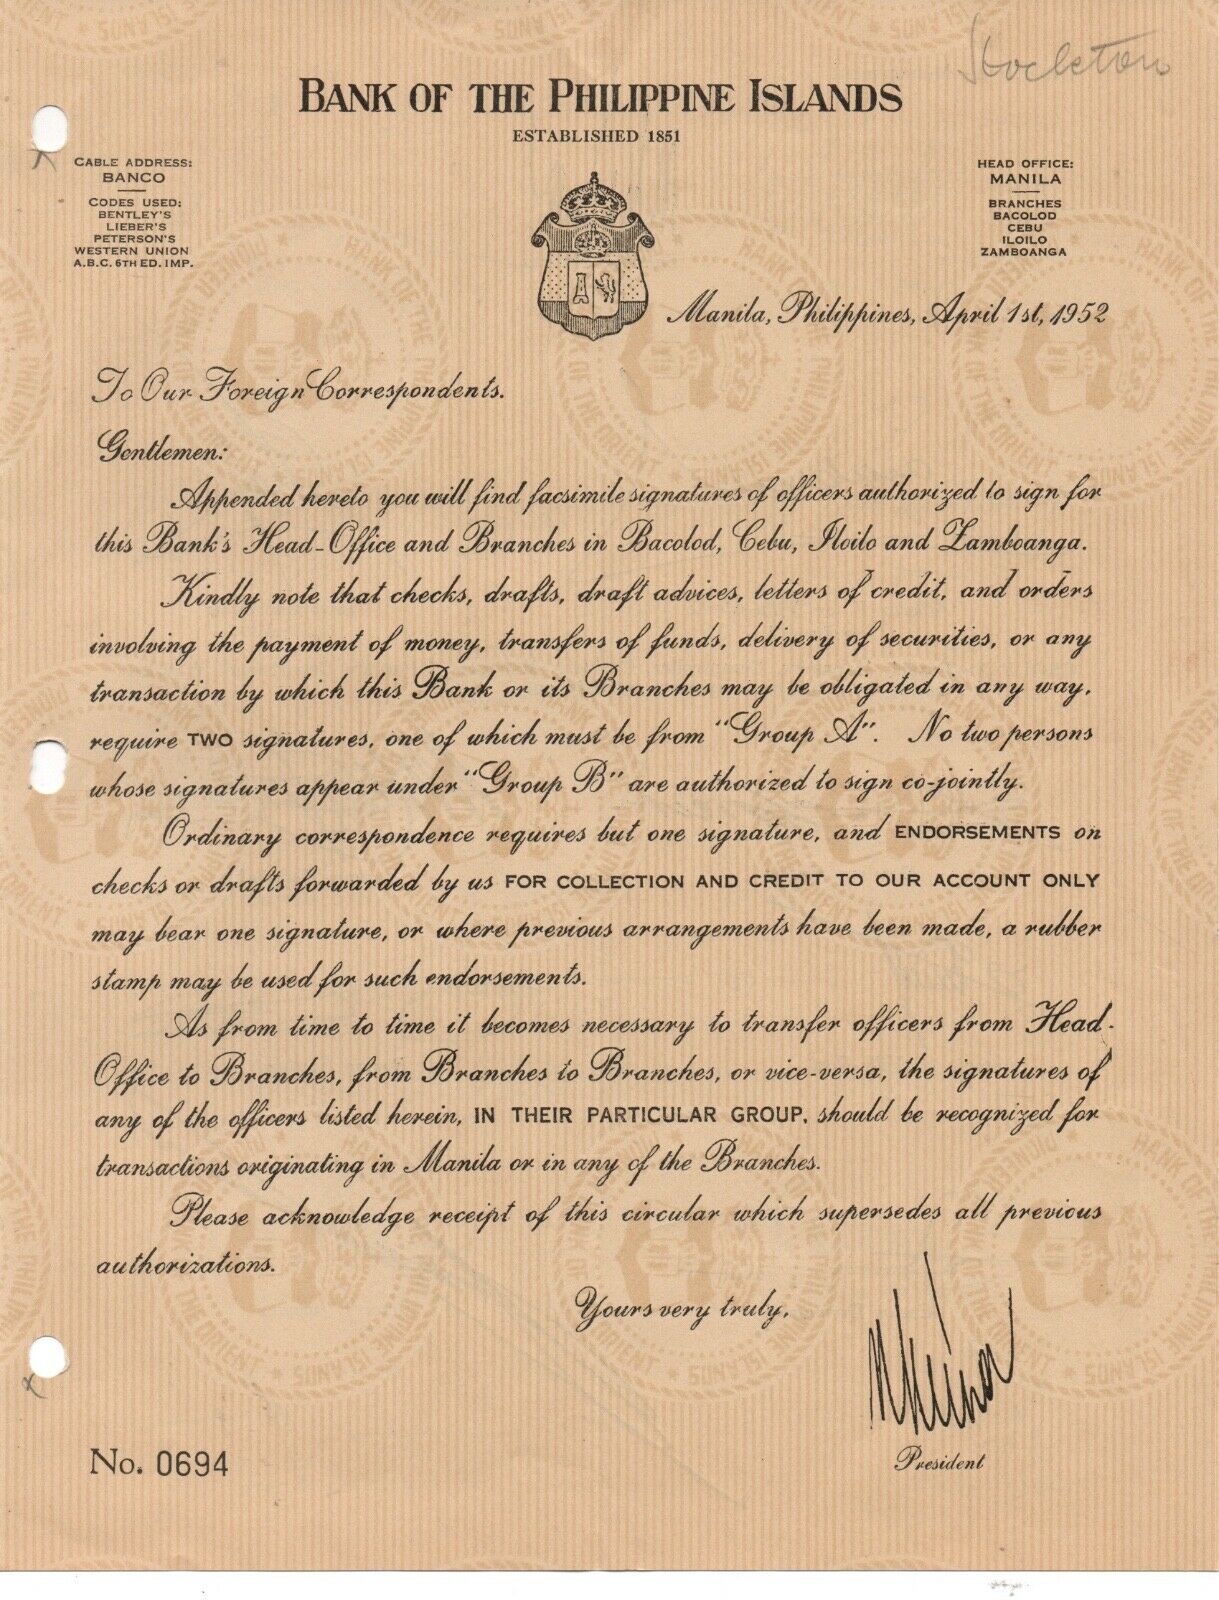 BANK OF THE PHILIPPINE ISLANDS
ESTABLISHED 1851
CABLE ADDRESS:
BANCO
CODES USED:
BENTLEY'S
LIEBER'S
PETERSON'S
WESTERN UNION
A.B.C. 6TH ED. IMP.
HEAD OFFICE:
MANILA
BRANCHES
BACOLOD
CEBU
ILOILO
ZAMBOANGA
Manila, Philippines, April 1st, 1952
To Our Foreign Correspondents.
Gentlemen:
Appended hereto you will find facsimile signatures of officers authorized to sign for
this Bank's Head-Office and Branches in Bacolod, Cebu, Iloilo and Zamboanga.
Kindly note that checks, drafts, draft advices, letters of credit, and orders
involving the payment of money, transfers of funds, delivery of securities, or any
transaction by which this Bank or its Branches may be obligated in any way,
require TWO signatures, one of which must be from "Group A". No two persons
whose signatures appear under "Group B" are authorized to sign co-jointly.
Ordinary correspondence requires but one signature, and ENDORSEMENTS on
checks or drafts forwarded by us FOR COLLECTION AND CREDIT TO OUR ACCOUNT ONLY
may bear one signature, or where previous arrangements have been made, a rubber
stamp may be used for such endorsements.
As from time to time it becomes necessary to transfer officers from Head-
Office to Branches, from Branches to Branches, or vice-versa, the signatures of
any of the officers listed herein, IN THEIR PARTICULAR GROUP, should be recognized for
transactions originating in Manila or in any of the Branches.
Please acknowledge receipt of this circular which supersedes all previous
authorizations.
Yours very truly,
President
No. 0694